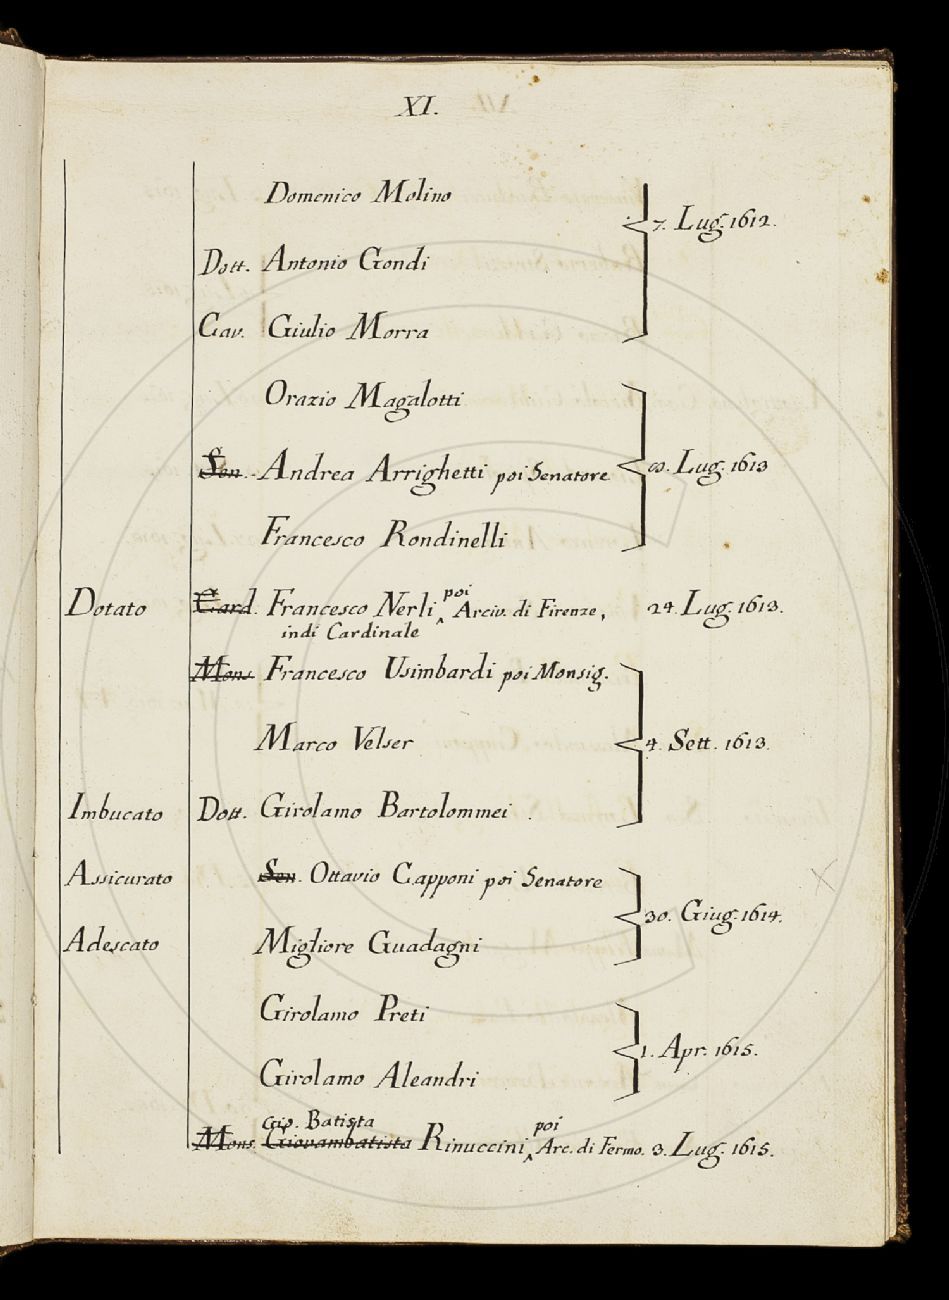 XI.
Domenico Molino
7. Lug. 1612.
Dott. Antonio Gondi
Cav. Giulio Morra
Orazio Magalotti
Sen. Andrea Arrighetti poi Senatore
8. Lug. 1613
Francesco Rondinelli
poi
Dotato Card. Francesco Nerli ^ Arciv. di Firenze, 24. Lug. 1613.
indi Cardinale
Mons. Francesco Usimbardi poi Monsig.
Marco Velser
4. Sett. 1613.
Imbucato Dott. Girolamo Bartolommei
Assicurato Sen. Ottavio Capponi poi Senatore
30. Giug. 1614.
Adescato Migliore Guadagni
Girolamo Preti
1. Apr. 1615.
Girolamo Aleandri
Gio. Batista poi
Mons. Giovambatista Rinuccini ^ Arc. di Fermo. 3. Lug. 1615.